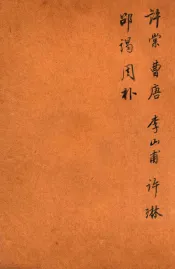 许棠 曹唐 李山甫 许琳
邵谒 周朴